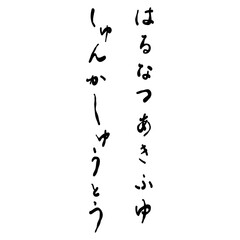 はるなつあきふゆ
しゅんかしゅうとう